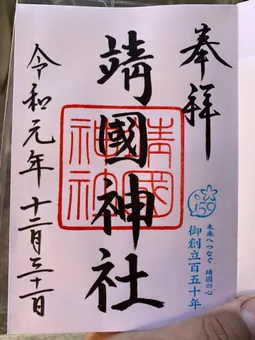 奉拝
靖國神社
靖國神社
150
未来へつなぐ 靖國の心
御創立百五十年
令和元年 十二月三十一日